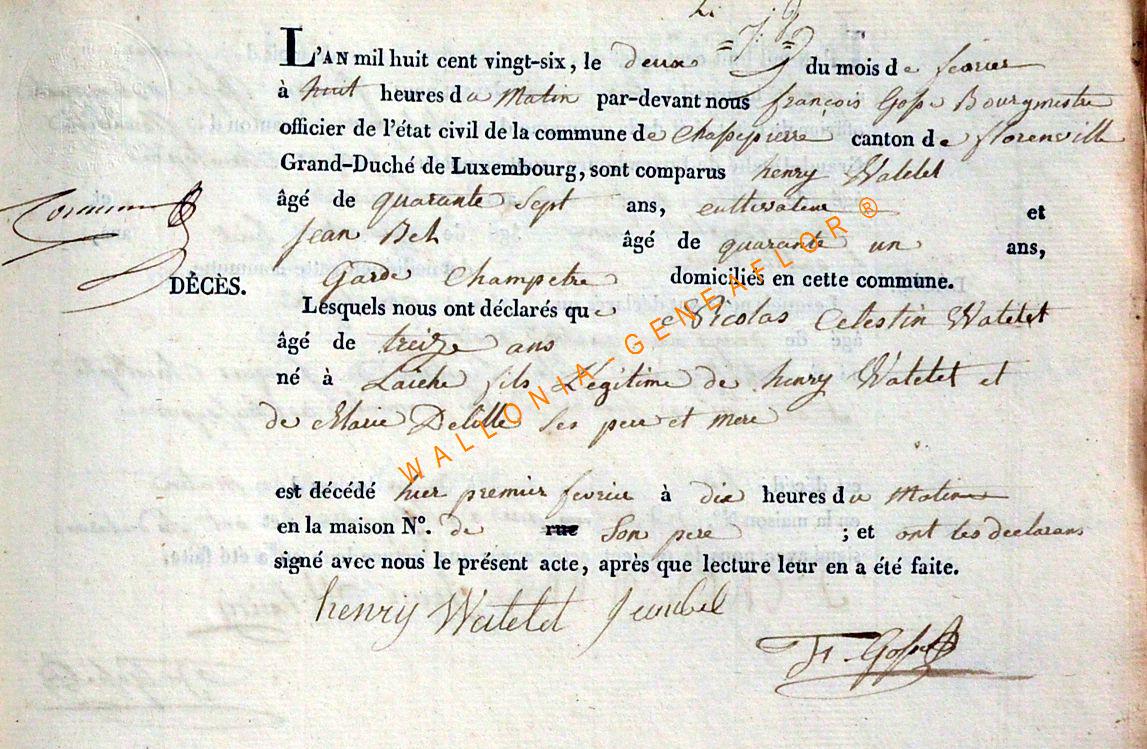 L'AN mil huit cent vingt-six, le deux du mois de fevrier
à huit heures du Matin par-devant nous françois Gosse Bourgmestre
officier de l'état civil de la commune de Chassepierre canton de florenville
Grand-Duché de Luxembourg, sont comparus henry Watelet
âgé de quarante Sept ans, cultivateur et
Jean Bel âgé de quarante un ans,
DÉCÈS.
Garde Champetre domiciliés en cette commune.
Lesquels nous ont déclarés que Nicolas Celestin Watelet
âgé de treize ans
né à Laiche fils Légitime de henry Watelet et
de Marie Delille ses pere et mere
est décédé hier premier fevrier à dix heures du Matin
en la maison N°. de rue Son pere ; et ont les declarans
signé avec nous le présent acte, après que lecture leur en a été faite.
henry Watelet Jeanbel
F. Gosse
WALLONIA-GENEAFLOR ®